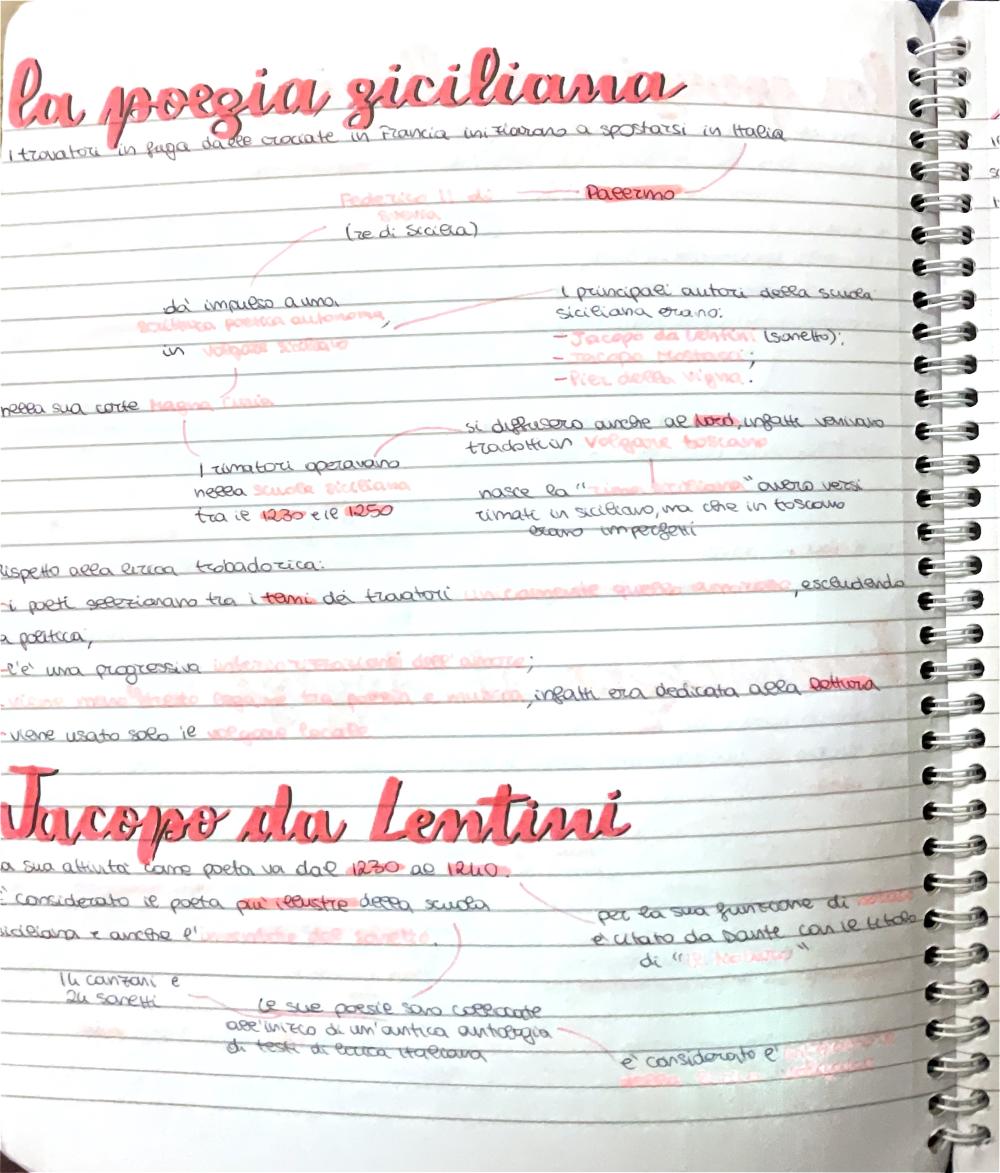 la poesia siciliana
I trovatori in fuga dalle crociate in Francia iniziarono a spostarsi in Italia
Palermo
Federico II di
Svevia
(re di Sicilia)
dà impulso a una
scrittura poetica autonoma,
in volgare siciliano
I principali autori della scuola
siciliana erano:
- Jacopo da Lentini (sonetto);
- Jacopo Mostacci;
- Pier della Vigna.
nella sua corte Magna Curia
si diffusero anche al Nord, infatti venivano
tradotti in volgare toscano
I rimatori operavano
nella scuola siciliana
tra il 1230 e il 1250
nasce la "rima siciliana" ovvero versi
rimati in siciliano, ma che in toscano
erano imperfetti
rispetto alla lirica trobadorica:
- i poeti selezionano tra i temi dei trovatori unicamente quello amoroso, escludendo
a politica;
- c'è una progressiva interiorizzazione dell'amore;
- viene meno stretto legame tra poesia e musica, infatti era dedicata alla lettura
- viene usato solo il volgare locale
Jacopo da Lentini
a sua attività come poeta va dal 1230 al 1240.
È considerato il poeta più illustre della scuola
siciliana e anche l'inventore del sonetto.
per la sua funzione di notaio
è citato da Dante con il titolo
di "il Notaro"
14 canzoni e
24 sonetti
Le sue poesie sono collocate
all'inizio di un'antica antologia
di testi di lirica italiana
è considerato l'